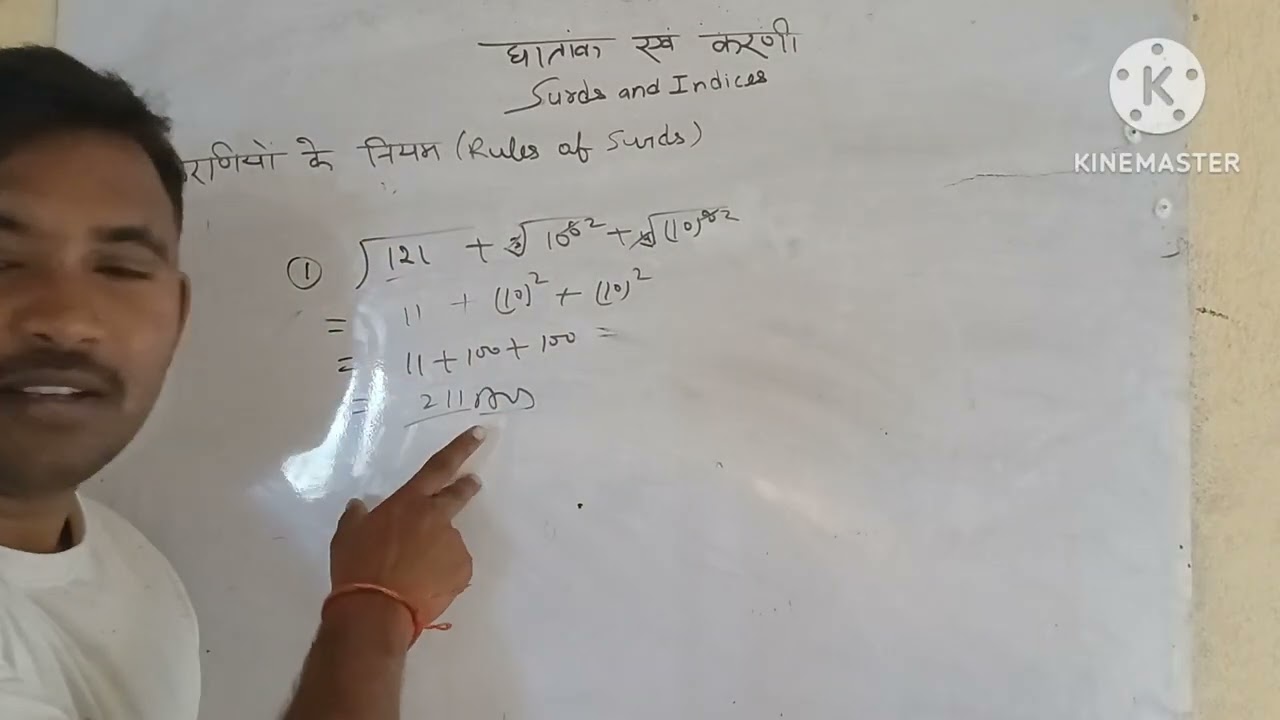 घातांक एवं करणी
Surds and Indices
रणियों के नियम (Rules of Surds)
① √121 + ∛10⁶ ² + √(10)⁸ ²
= 11 + (10)² + (10)²
= 11 + 100 + 100 =
= 211 Ans
K
KINEMASTER